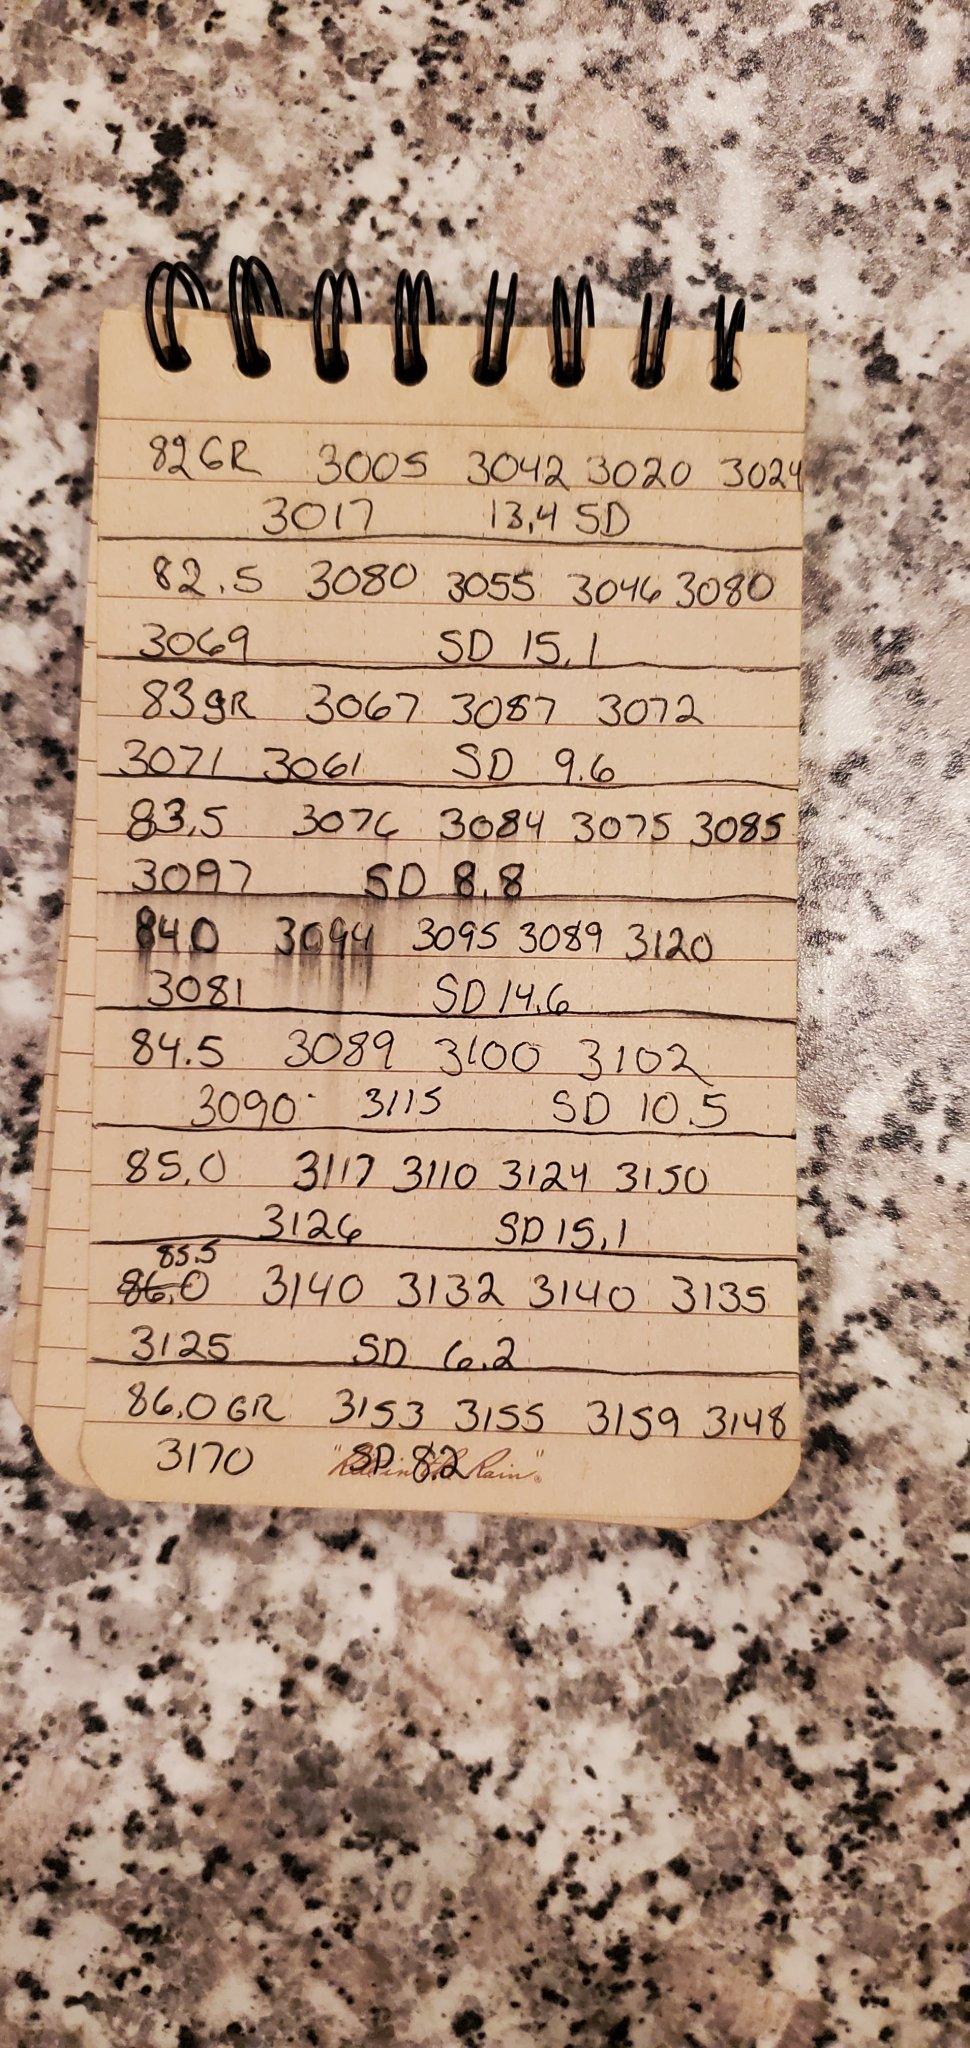 82GR 3005 3042 3020 3024
3017 13.4 SD
82.5 3080 3055 3046 3080
3069 SD 15.1
83gR 3067 3087 3072
3071 3061 SD 9.6
83.5 3076 3084 3075 3085
3097 SD 8.8
84.0 3094 3095 3089 3120
3081 SD 14.6
84.5 3089 3100 3102
3090 3115 SD 10.5
85.0 3117 3110 3124 3150
3126 SD 15.1
85.5
86.0 3140 3132 3140 3135
3125 SD 6.2
86.0 GR 3153 3155 3159 3148
3170 SD 8.2
Rain"